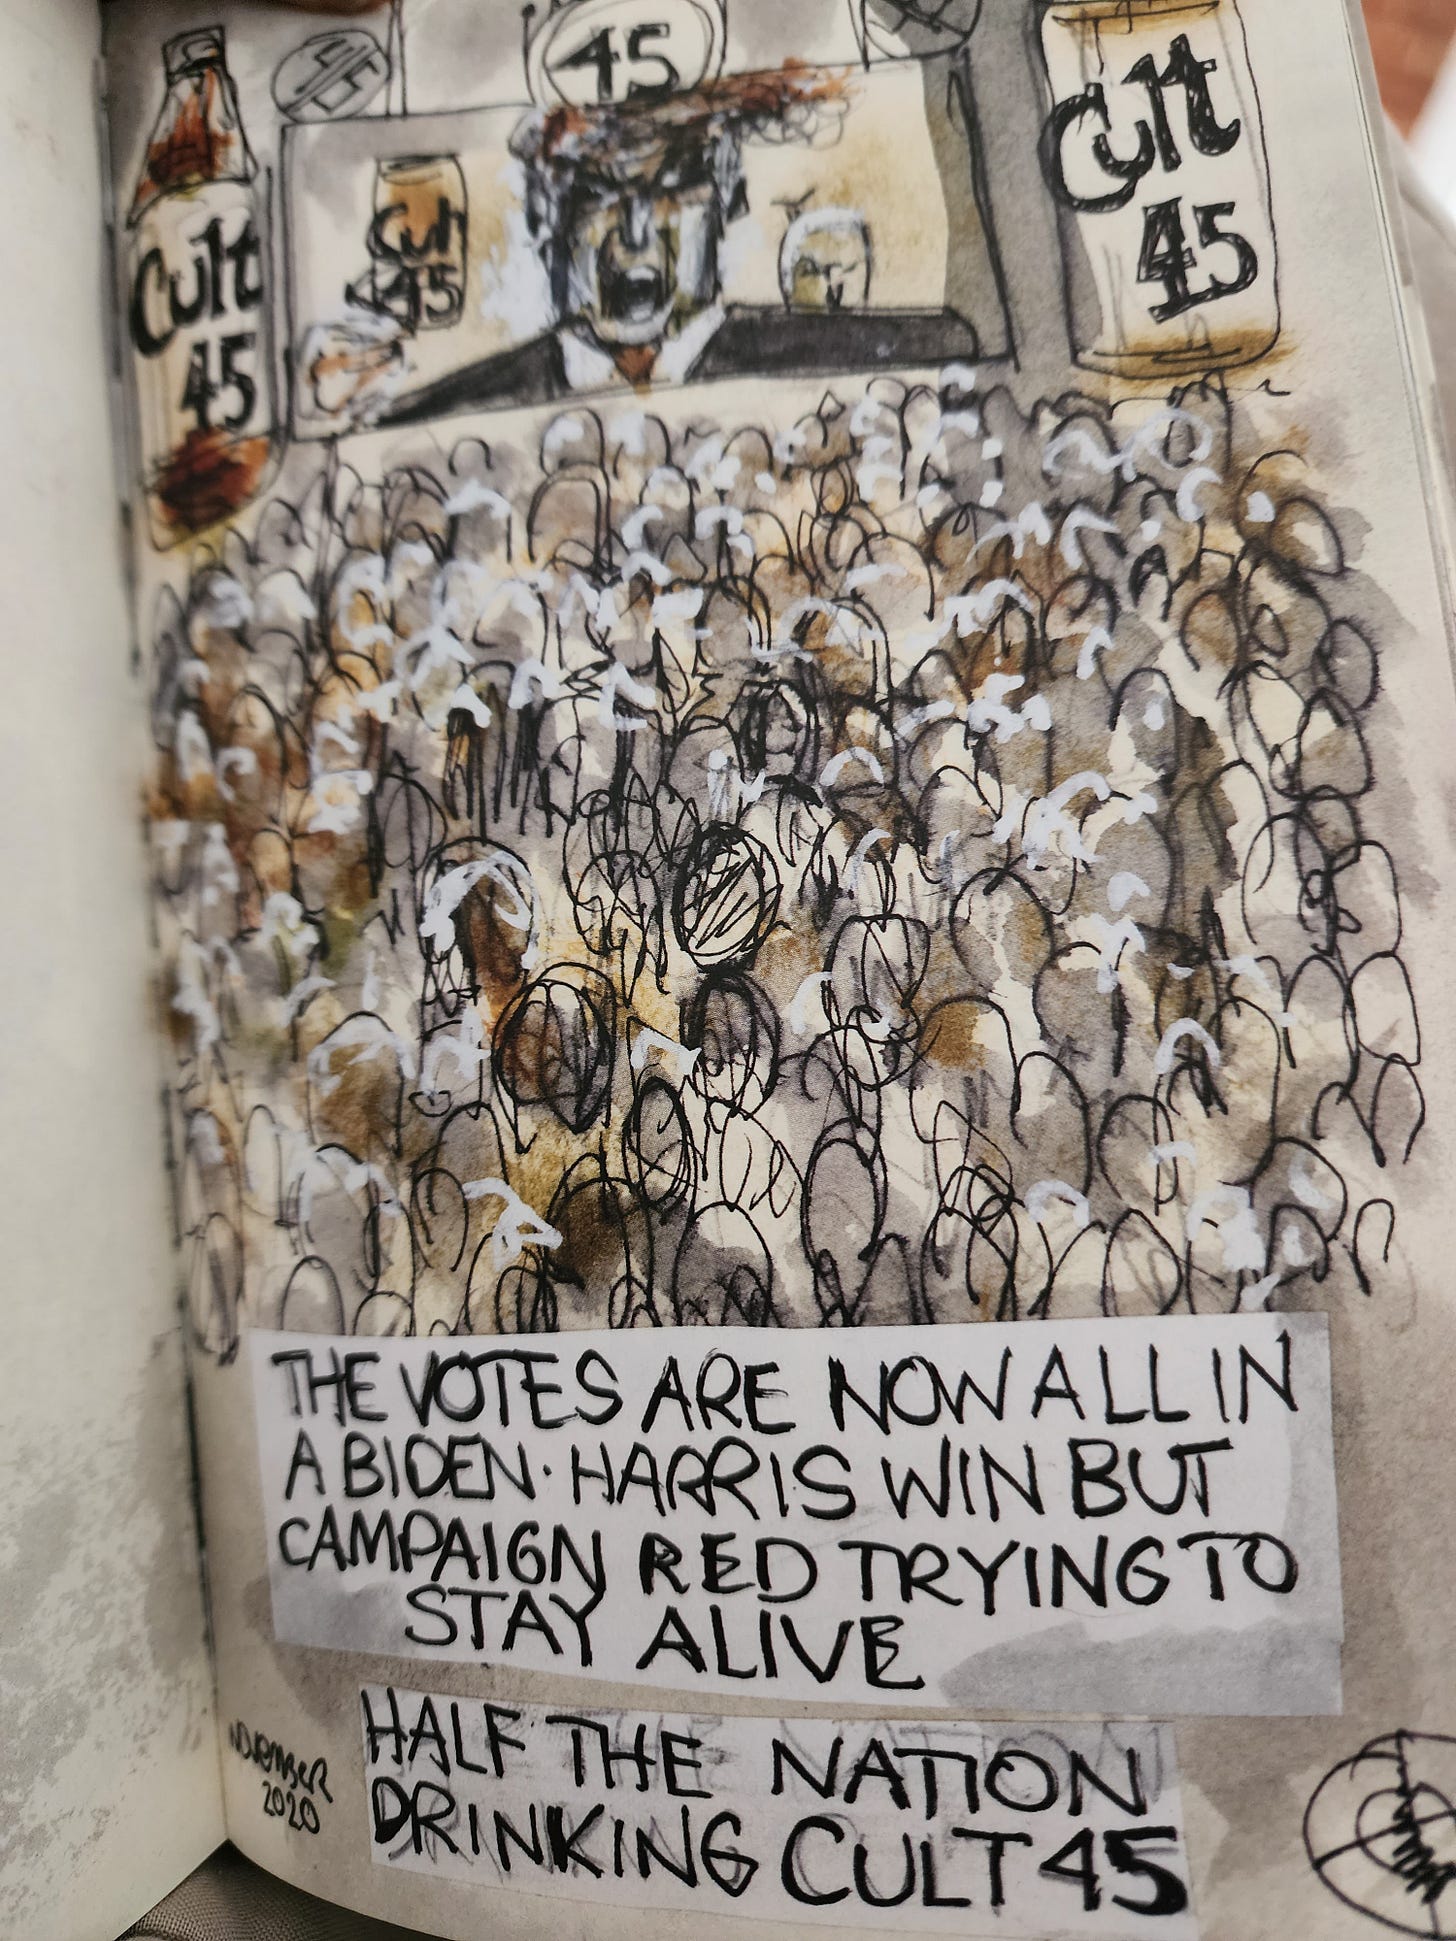 45
Cult
45
Cult
45
Cult
45
THE VOTES ARE NOW ALL IN
A BIDEN·HARRIS WIN BUT
CAMPAIGN RED TRYING TO
STAY ALIVE
HALF THE NATION
DRINKING CULT 45
NOVEMBER
2020